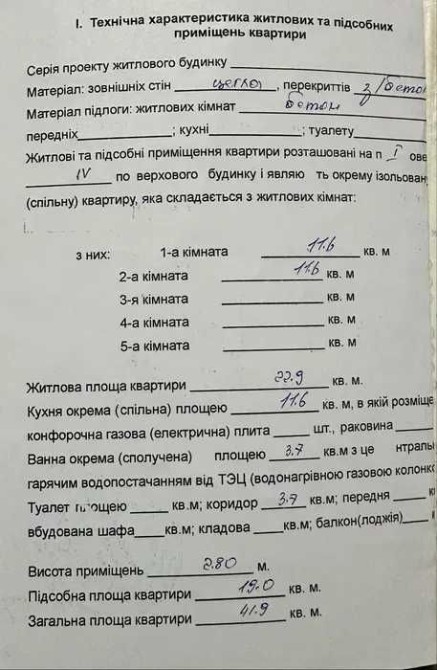 I. Технічна характеристика житлових та підсобних
приміщень квартири
Серія проекту житлового будинку
Матеріал: зовнішніх стін цегла, перекриттів з/бетон
Матеріал підлоги: житлових кімнат бетон
передніх ; кухні ; туалету
Житлові та підсобні приміщення квартири розташовані на п I ове
IV по верхового будинку і являю ть окрему ізольован
(спільну) квартиру, яка складається з житлових кімнат:
з них: 1-а кімната 11.6 кв. м
2-а кімната 11.6 кв. м
3-я кімната кв. м
4-а кімната кв. м
5-а кімната кв. м
Житлова площа квартири 22.9 кв. м.
Кухня окрема (спільна) площею 11.6 кв. м, в якій розміще
конфорочна газова (електрична) плита шт., раковина
Ванна окрема (сполучена) площею 3.7 кв.м з це нтраль
гарячим водопостачанням від ТЕЦ (водонагрівною газовою колонко
Туалет площею кв.м; коридор 3.7 кв.м; передня к
вбудована шафа кв.м; кладова кв.м; балкон(лоджія)
Висота приміщень 2.80 м.
Підсобна площа квартири 19.0 кв. м.
Загальна площа квартири 41.9 кв. м.